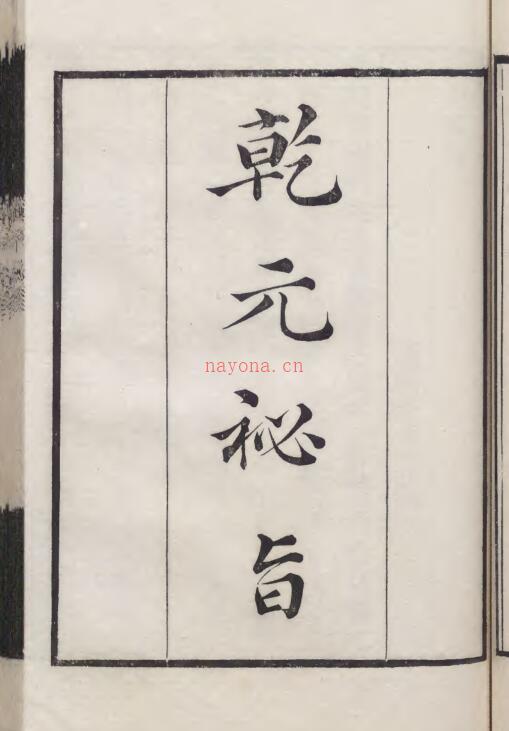 乾元祕旨
nayona.cn